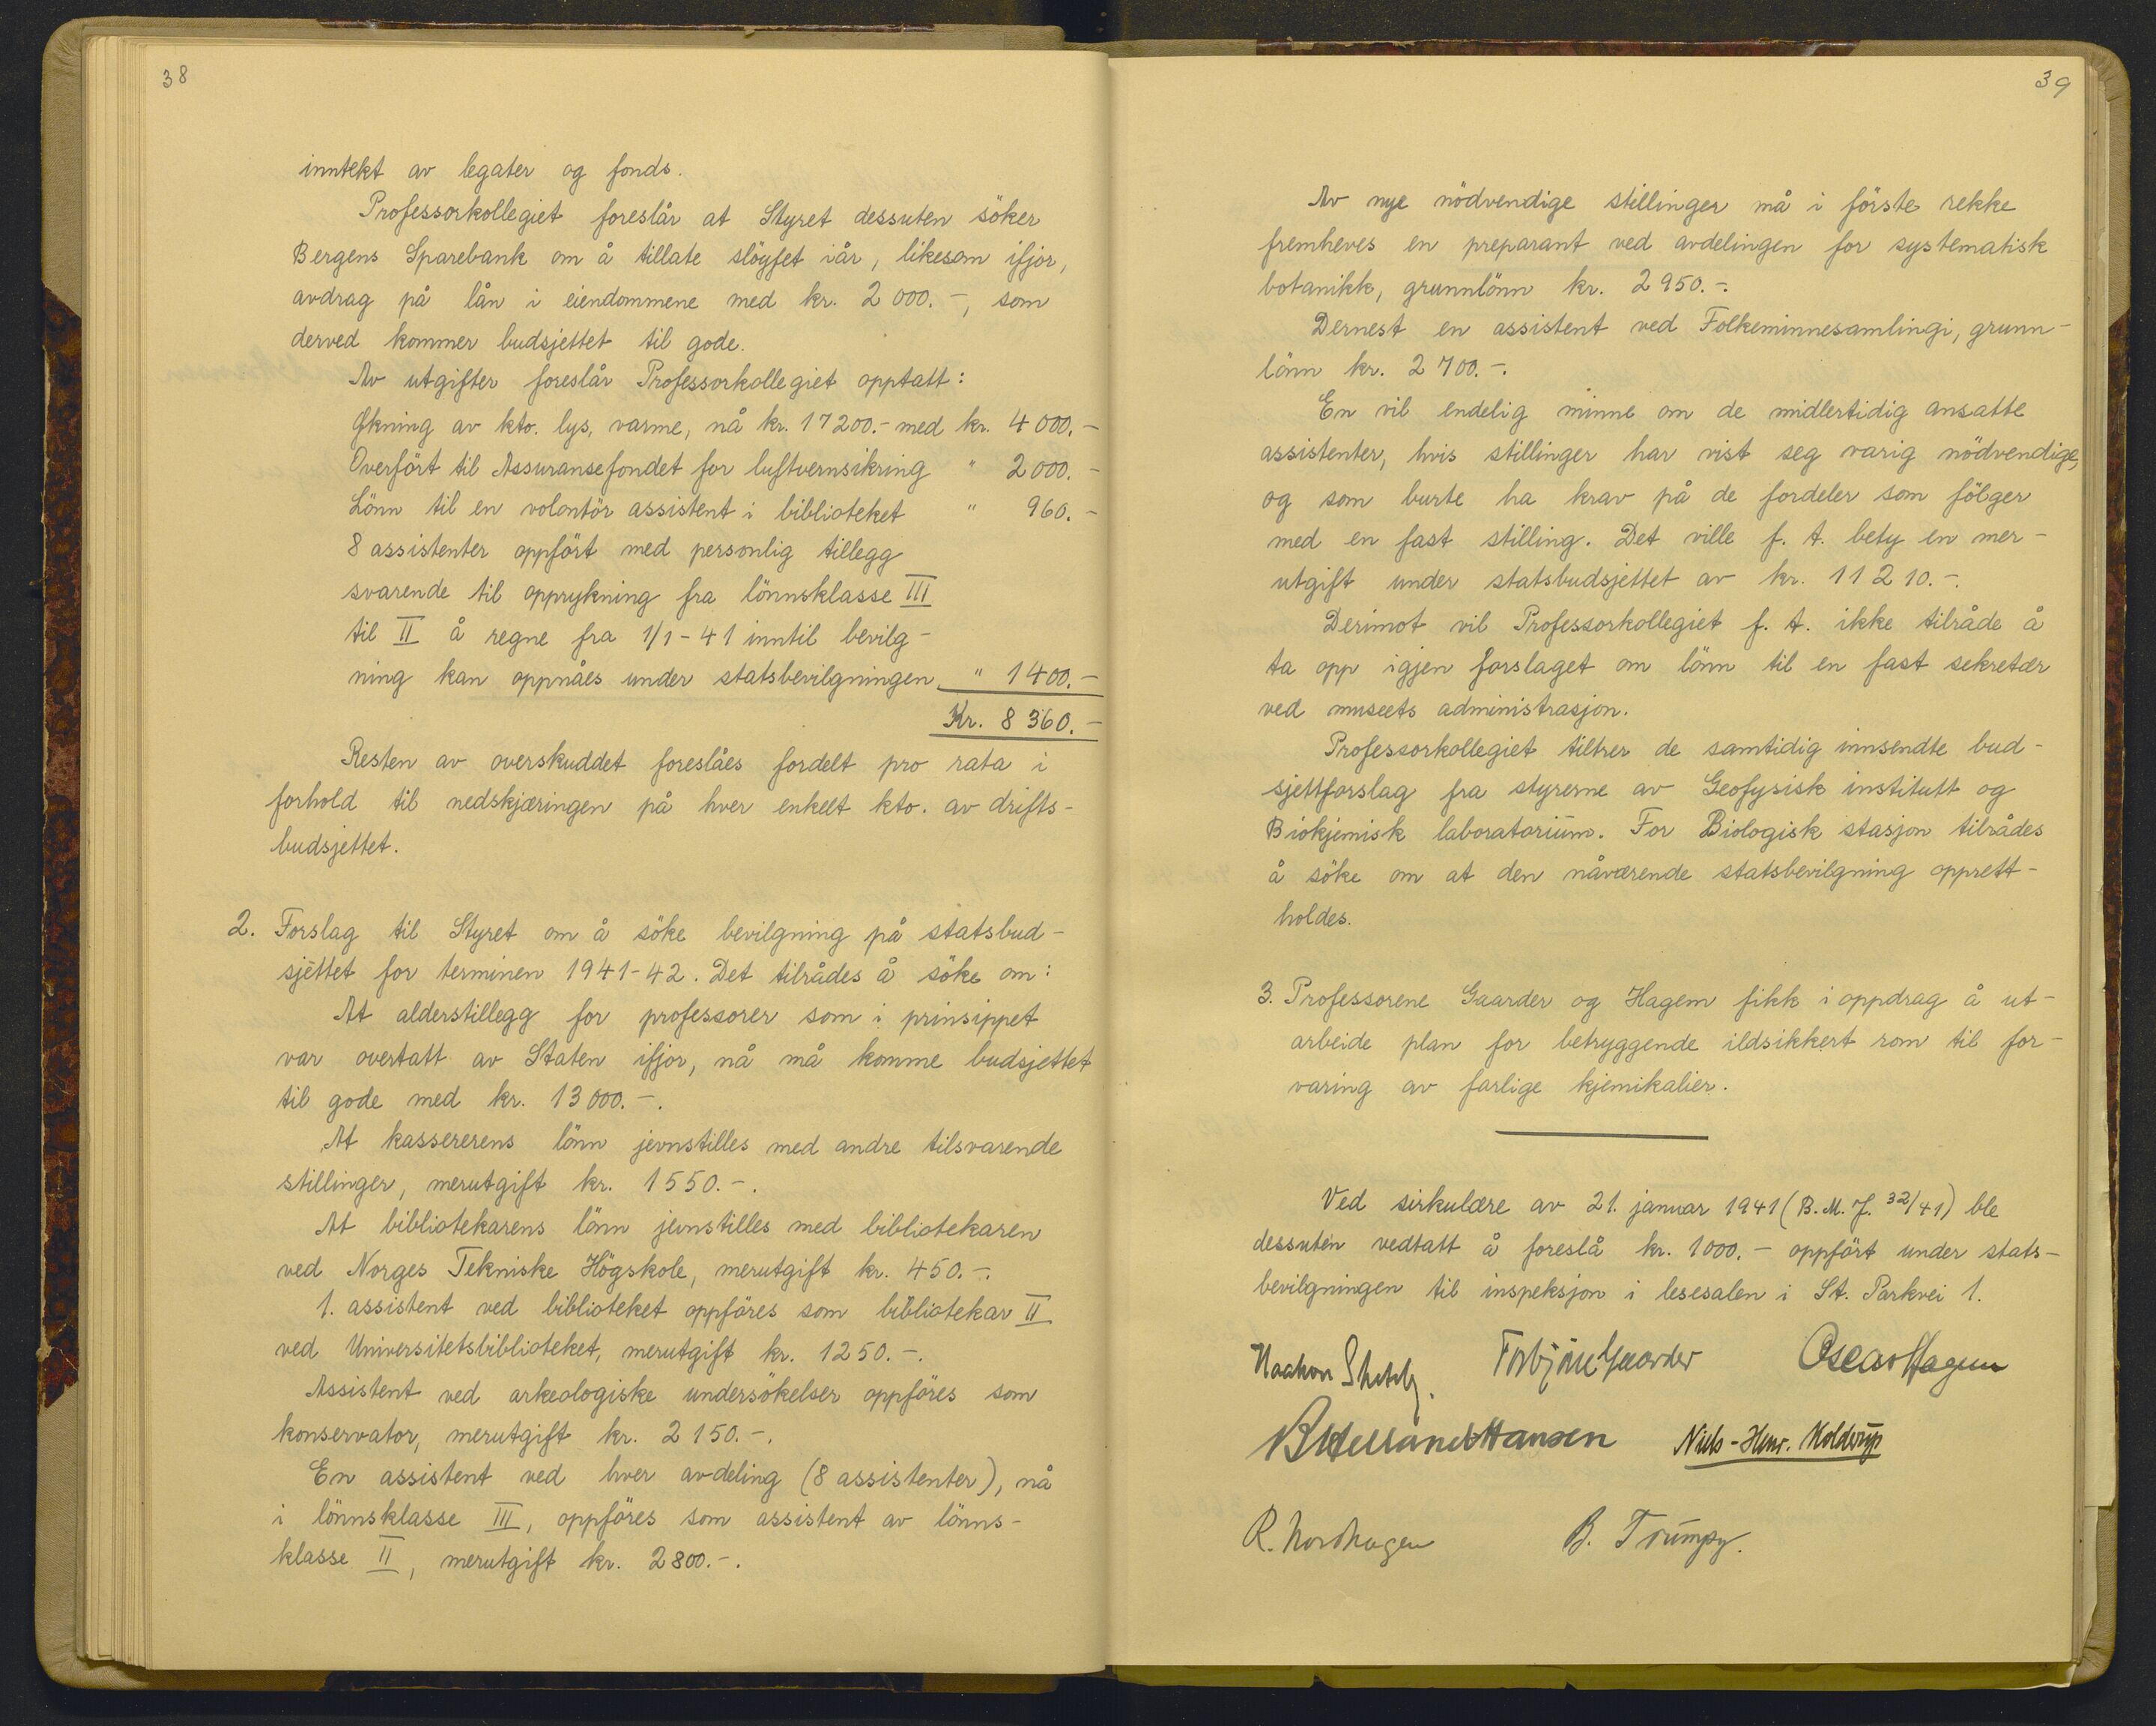 38
inntekt av legater og fonds.
Professorkollegiet foreslår at Styret dessuten söker
Bergens Sparebank om å tillate slöyfet iår, likesom ifjor,
avdrag på lån i eiendommene med kr. 2 000.-, som
derved kommer budsjettet til gode.
Av utgifter foreslår Professorkollegiet opptatt:
Økning av kto. lys, varme, nå kr. 17 200.- med kr. 4 000.-
Overfört til Assuransefondet for luftvernsikring " 2 000.-
Lönn til en volontör assistent i biblioteket " 960.-
8 assistenter oppfört med personlig tillegg
svarende til opprykning fra lönnsklasse III
til II å regne fra 1/1-41 inntil bevilg-
ning kan oppnåes under statsbevilgningen " 1 400.-
Kr. 8 360.-
Resten av overskuddet foreslåes fordelt pro rata i
forhold til nedskjæringen på hver enkelt kto. av drifts-
budsjettet.
2. Forslag til Styret om å söke bevilgning på statsbud-
sjettet for terminen 1941-42. Det tilrådes å söke om:
At alderstillegg for professorer som i prinsippet
var overtatt av Staten ifjor, nå må komme budsjettet
til gode med kr. 13 000.-.
At kassererens lönn jevnstilles med andre tilsvarende
stillinger, merutgift kr. 1 550.-.
At bibliotekarens lönn jevnstilles med bibliotekaren
ved Norges Tekniske Högskole, merutgift kr. 450.-.
1. assistent ved biblioteket oppföres som bibliotekar II
ved Universitetsbiblioteket, merutgift kr. 1 250.-.
Assistent ved arkeologiske undersökelser oppföres som
konservator, merutgift kr. 2 150.-.
En assistent ved hver avdeling (8 assistenter), nå
i lönnsklasse III, oppföres som assistent av lönns-
klasse II, merutgift kr. 2 800.-.
39
Av nye nödvendige stillinger må i förste rekke
fremheves en preparant ved avdelingen for systematisk
botanikk, grunnlönn kr. 2 950.-.
Dernest en assistent ved Folkeminnesamlingi, grunn-
lönn kr. 2 700.-.
En vil endelig minne om de midlertidig ansatte
assistenter, hvis stillinger har vist seg varig nödvendige,
og som burte ha krav på de fordeler som fölger
med en fast stilling. Det ville f. t. bety en mer-
utgift under statsbudsjettet av kr. 11 210.-.
Derimot vil Professorkollegiet f. t. ikke tilråde å
ta opp igjen forslaget om lönn til en fast sekretær
ved museets administrasjon.
Professorkollegiet tiltrer de samtidig innsendte bud-
sjettforslag fra styrerne av Geofysisk institutt og
Biokjemisk laboratorium. For Biologisk stasjon tilrådes
å söke om at den nåværende statsbevilgning opprett-
holdes.
3. Professorene Gaarder og Hagem fikk i oppdrag å ut-
arbeide plan for betryggende ildsikkert rom til for-
varing av farlige kjemikalier.
Ved sirkulære av 21. januar 1941 (B. M. J. 32/41) ble
dessuten vedtatt å foreslå kr. 1 000.- oppfört under stats-
bevilgningen til inspeksjon i lesesalen i St. Parkvei 1.
Haakon Shetelig. Torbjörn Gaarder Oscar Hagem
B Helland-Hansen Niels-Henr. Kolderup
R. Nordhagen B. Trumpy.